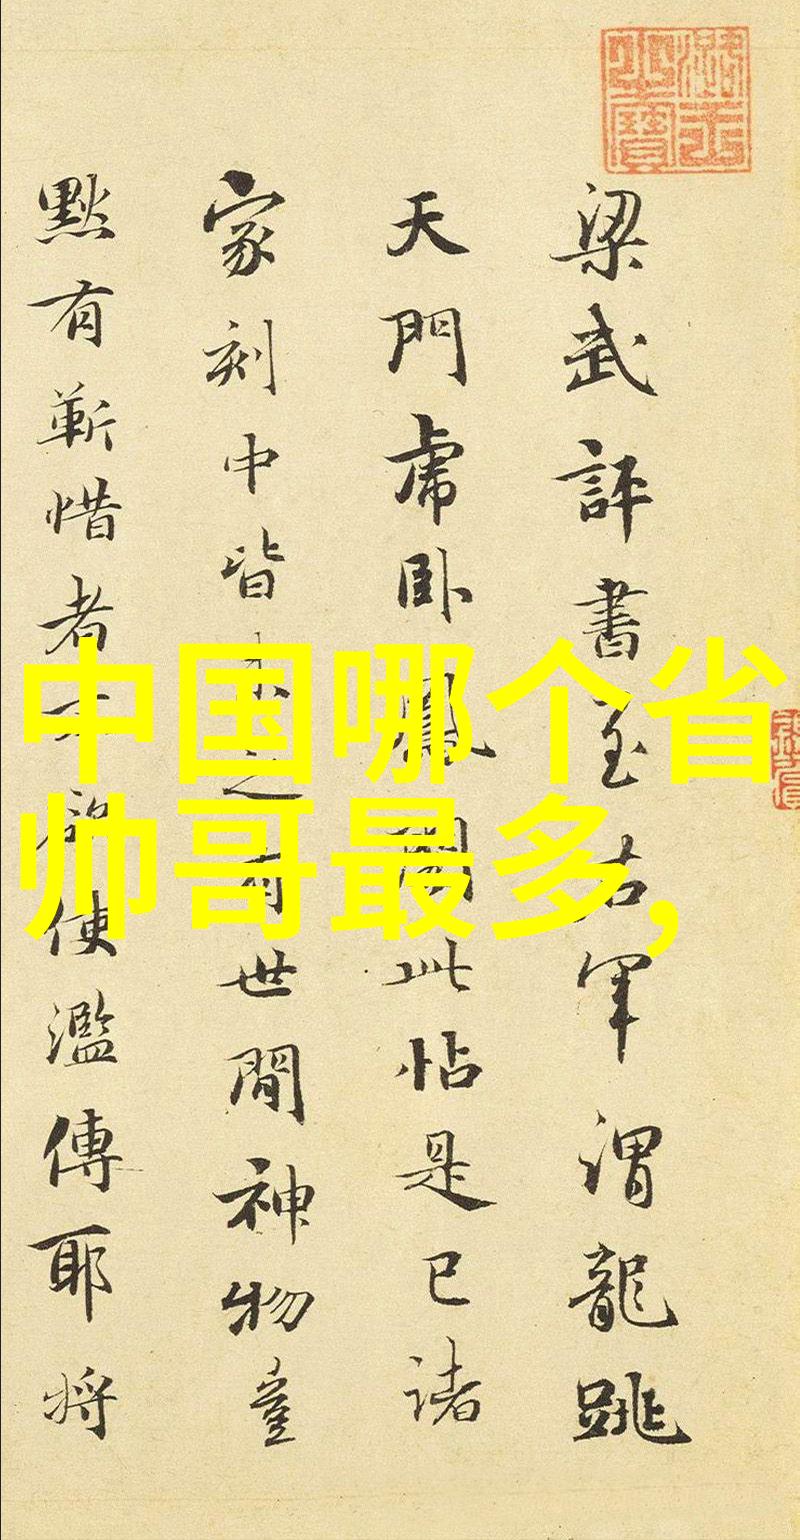 中国哪个省
帅哥最多,
梁武評書至右軍謂龍跳
天門虎卧鳳閣此帖是已諸
家刻中皆未之有世間神物
點有靳惜者不欲使濫傳耶將